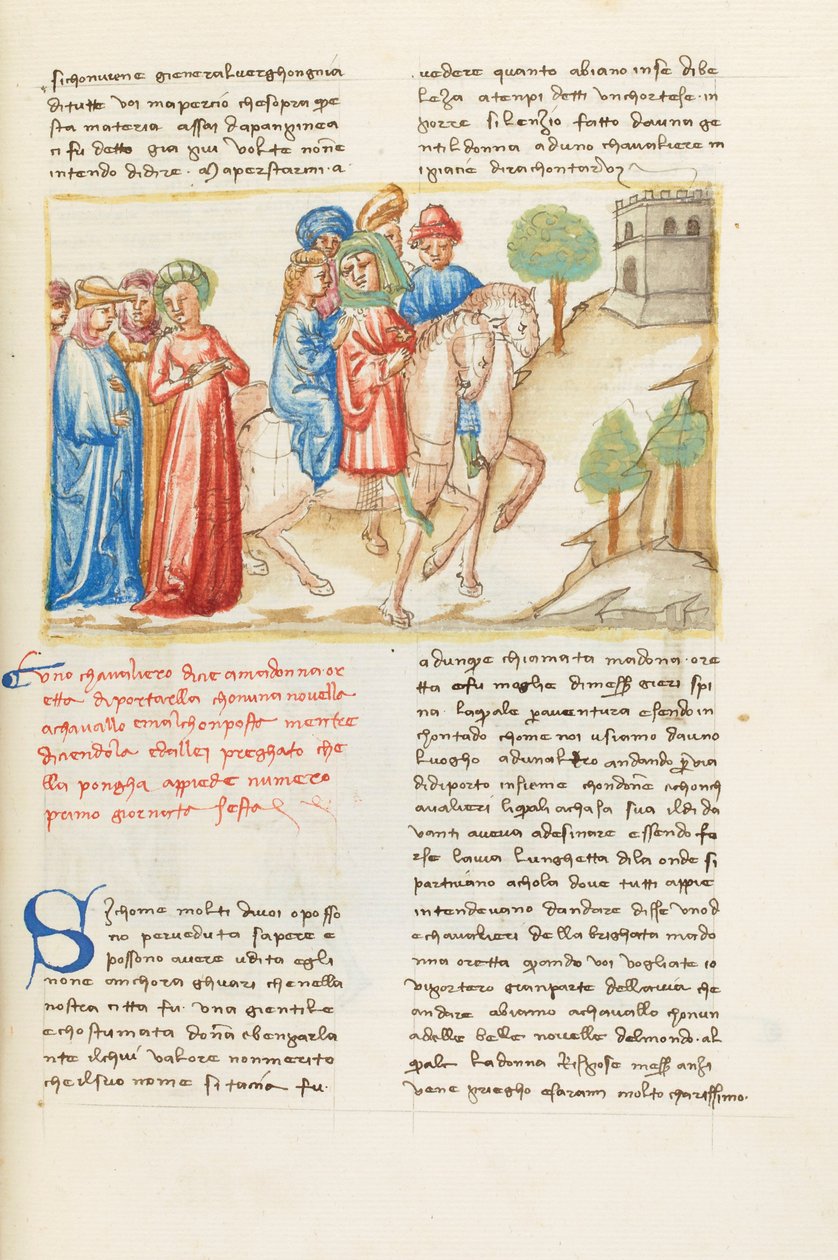 si chonviene gieneral verghongnia
di tutte voi ma perciò che sopra que
sta materia assai da panpinea
ci fu detto già piu volte none
intendo di dire. Ma per starmi. a
vedere quanto abiano in se di be
leza a tenpi detti un chortese. in
porre silenzio fatto da una ge
ntil donna ad uno chavaliere m
i piacie di rachontarvi
Uno chavaliero dicie a madonna. or
etta di portarlla chon una novella
a chavallo e mal chonposta mentre
diciendola e da llei preghato che
lla pongha appiede numero
primo giornata sesta
Si chome molti di voi o posso
no per veduta sapere e
possono avere udita egli
none anchora ghuari che nella
nostra citta fu. una gientile
e chostumata donna e ben parla
nte il chui valore non merito
che il suo nome si tacia fu.
adunque chiamata madona. ore
tta e fu moglie di mess gieri spi
na. la quale per aventura esendo in
chontado chome noi usiamo da uno
luogho ad un altro andando per via
di diporto insieme chon done e chonch
avalieri li quali a chasa sua il di da
vanti aveva a desinare essendo fo
rse la via lunghetta di la onde si
partivano a chola dove tutti appie
intendevano dandare disse uno d
e chavalieri della brighata mado
nna oretta quando voi vogliate io
vi portero gran parte della via che
andare abiamo a chavallo chon un
a delle belle novelle del mondo. al
quale la donna rispose mess anzi
vene priegho e sarami molto charissimo.